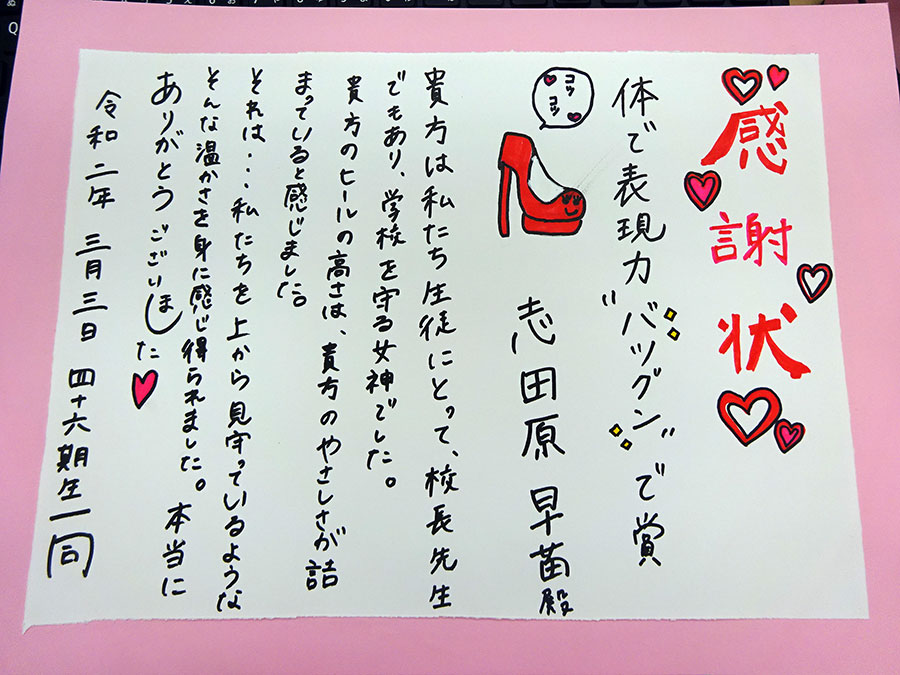 感謝状
体で表現力"バツグン"で賞
コツコツ
志田原 早苗殿
貴方は私たち生徒にとって、校長先生
でもあり、学校を守る女神でした。
貴方のヒールの高さは、貴方のやさしさが詰
まっていると感じました。
それは・・・私たちを上から見守っているような
そんな温かさを身に感じ得られました。本当に
ありがとうございました
令和二年 三月三日 四十六期生一同